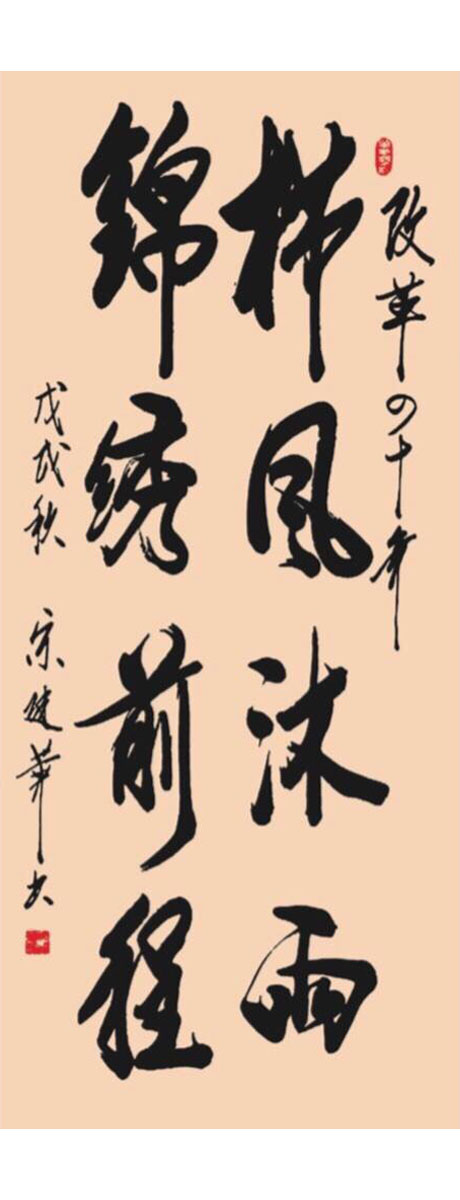 改革四十年
栉风沐雨
锦绣前程
戊戌秋 宗健华书